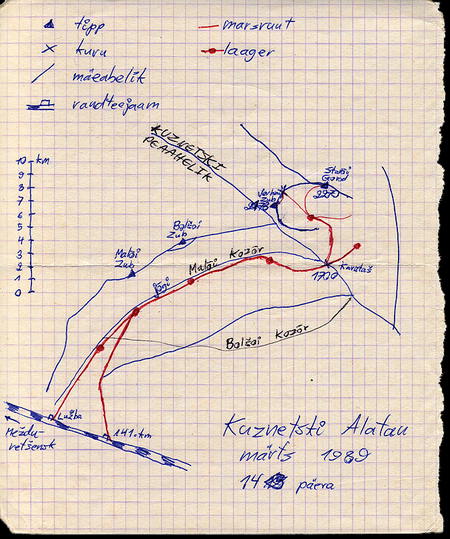 tipp
kuru
mäeahelik
raudteejaam
marsruut
laager
KUZNETSKI
PEAAHELIK
10 km
9
8
7
6
5
4
3
2
1
0
Starõi
Grad
Verhnii
Zub
Bolšoi
Zub
Malõi
Zub
Malõi Kozõr
Karataš
1700
Bolšoi Kozõr
Lužba
141. km
Meždu-
retšensk
Kuznetski Alatau
märts 1989
14 päeva